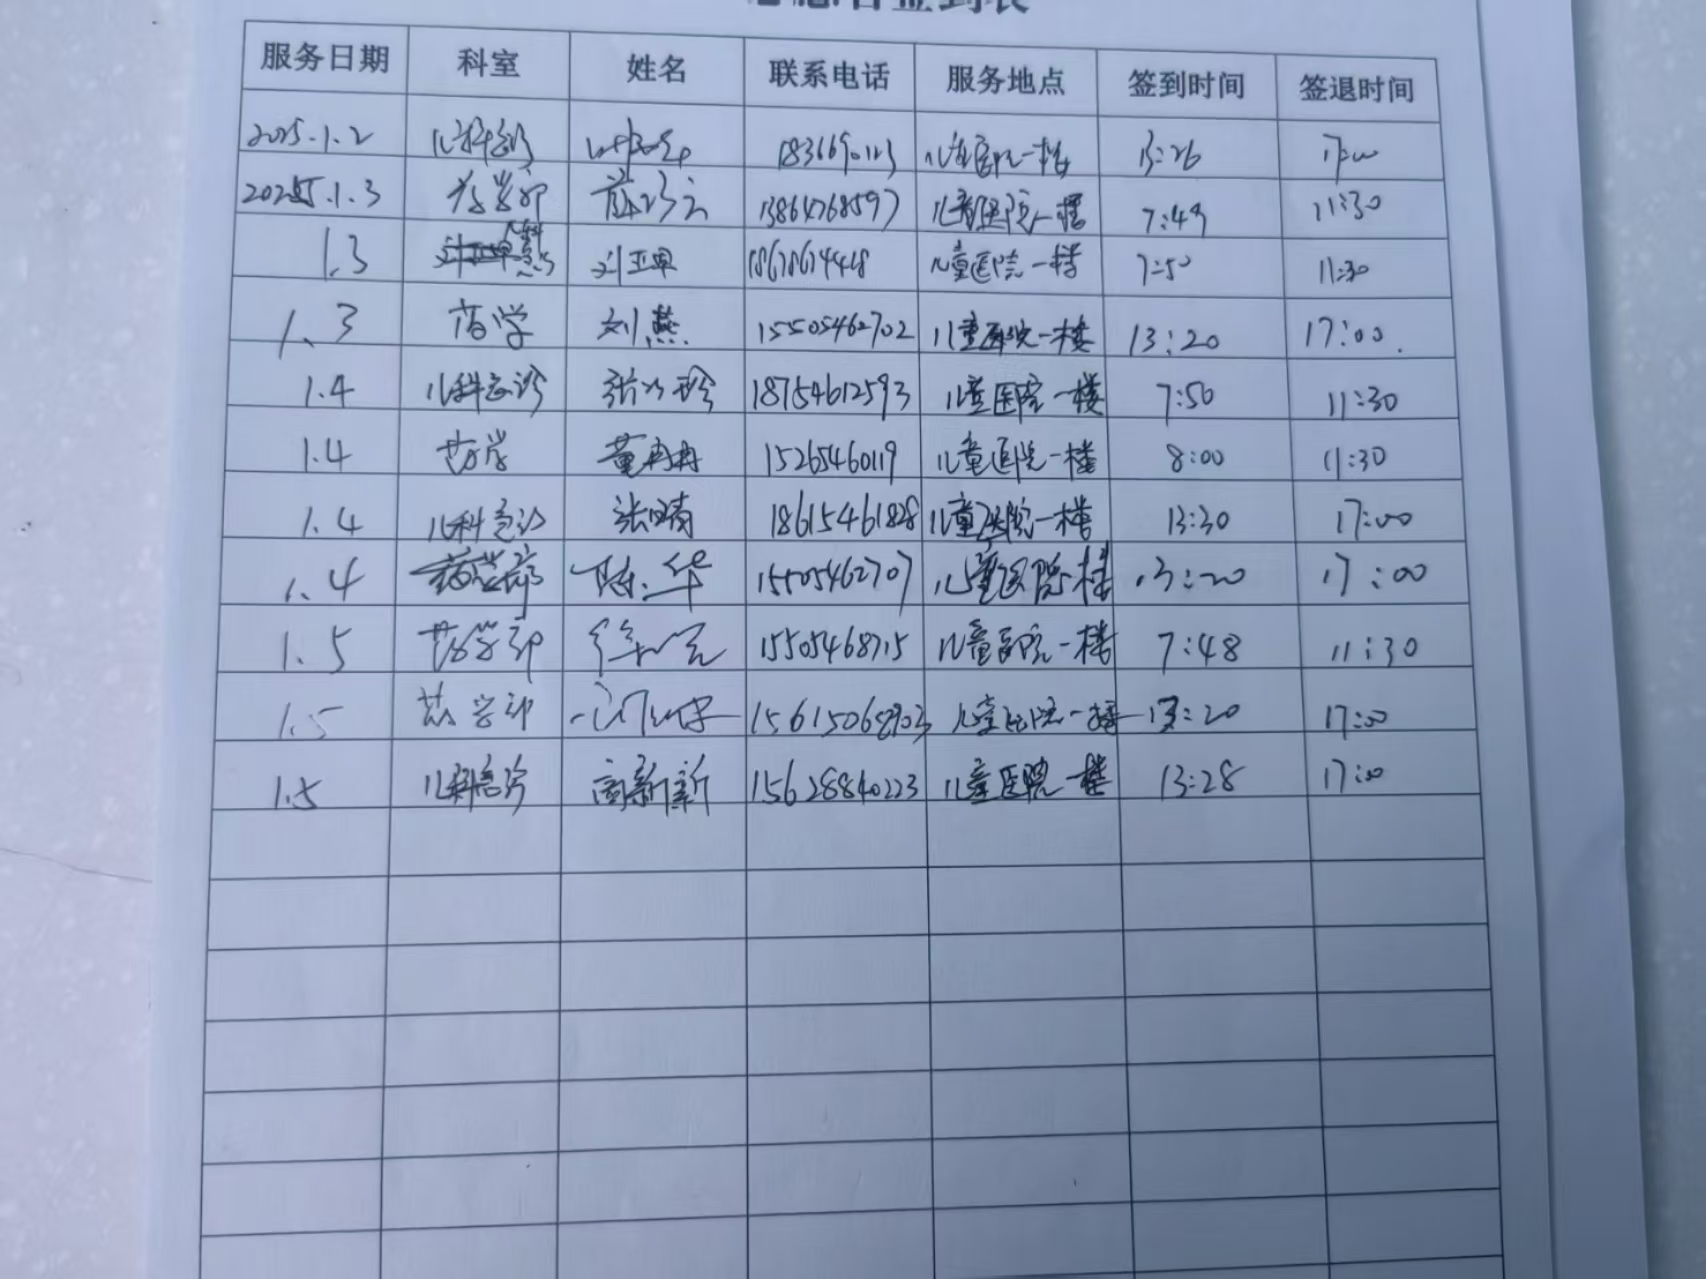 签到表
服务日期 科室 姓名 联系电话 服务地点 签到时间 签退时间
2025.1.2 儿科急诊 儿童医院一楼 13:26 17:00
2025.1.3 药学部 13864768597 儿童医院一楼 7:49 11:30
1.3 儿科急诊 刘亚卑 儿童医院一楼 7:50 11:30
1.3 药学 刘燕 15505462702 儿童医院一楼 13:20 17:00.
1.4 儿科急诊 18754612593 儿童医院一楼 7:50 11:30
1.4 药学 董冉冉 15265460119 儿童医院一楼 8:00 11:30
1.4 儿科急诊 张晴 18615461828 儿童医院一楼 13:30 17:00
1.4 药学部 陈华 15505462707 儿童医院一楼 13:20 17:00
1.5 药学部 15505468715 儿童医院一楼 7:48 11:30
1.5 药学部 儿童医院一楼 13:20 17:00
1.5 儿科急诊 商新新 15628840223 儿童医院一楼 13:28 17:00